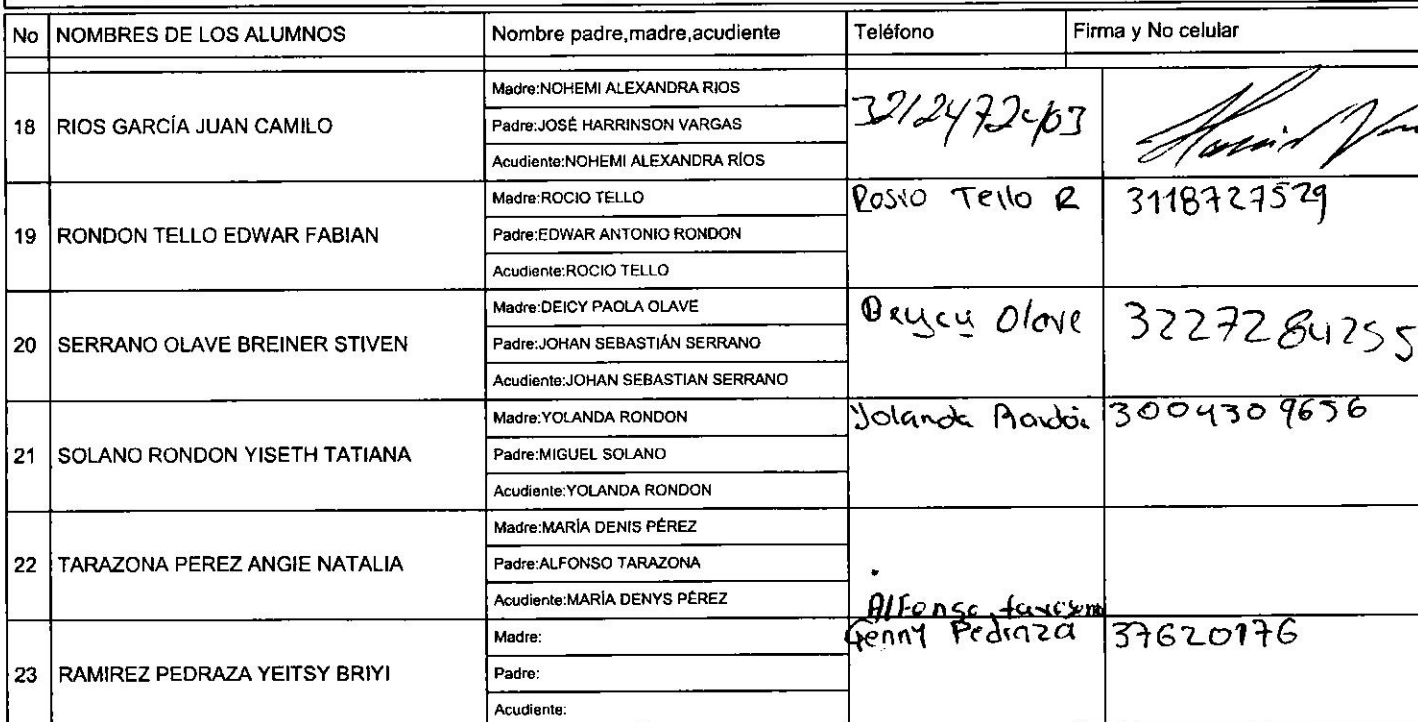 No NOMBRES DE LOS ALUMNOS Nombre padre,madre,acudiente Teléfono Firma y No celular
18 RIOS GARCÍA JUAN CAMILO
Madre:NOHEMI ALEXANDRA RIOS
Padre:JOSÉ HARRINSON VARGAS
Acudiente:NOHEMI ALEXANDRA RÍOS
3212472403
19 RONDON TELLO EDWAR FABIAN
Madre:ROCIO TELLO
Padre:EDWAR ANTONIO RONDON
Acudiente:ROCIO TELLO
Rosio Tello R 3118727529
20 SERRANO OLAVE BREINER STIVEN
Madre:DEICY PAOLA OLAVE
Padre:JOHAN SEBASTIÁN SERRANO
Acudiente:JOHAN SEBASTIAN SERRANO
Deycy Olave 3227284255
21 SOLANO RONDON YISETH TATIANA
Madre:YOLANDA RONDON
Padre:MIGUEL SOLANO
Acudiente:YOLANDA RONDON
Yolanda Rondón 3004309656
22 TARAZONA PEREZ ANGIE NATALIA
Madre:MARÍA DENIS PÉREZ
Padre:ALFONSO TARAZONA
Acudiente:MARÍA DENYS PÉREZ
Alfonso
23 RAMIREZ PEDRAZA YEITSY BRIYI
Madre:
Padre:
Acudiente:
Genny Pedraza 37620176